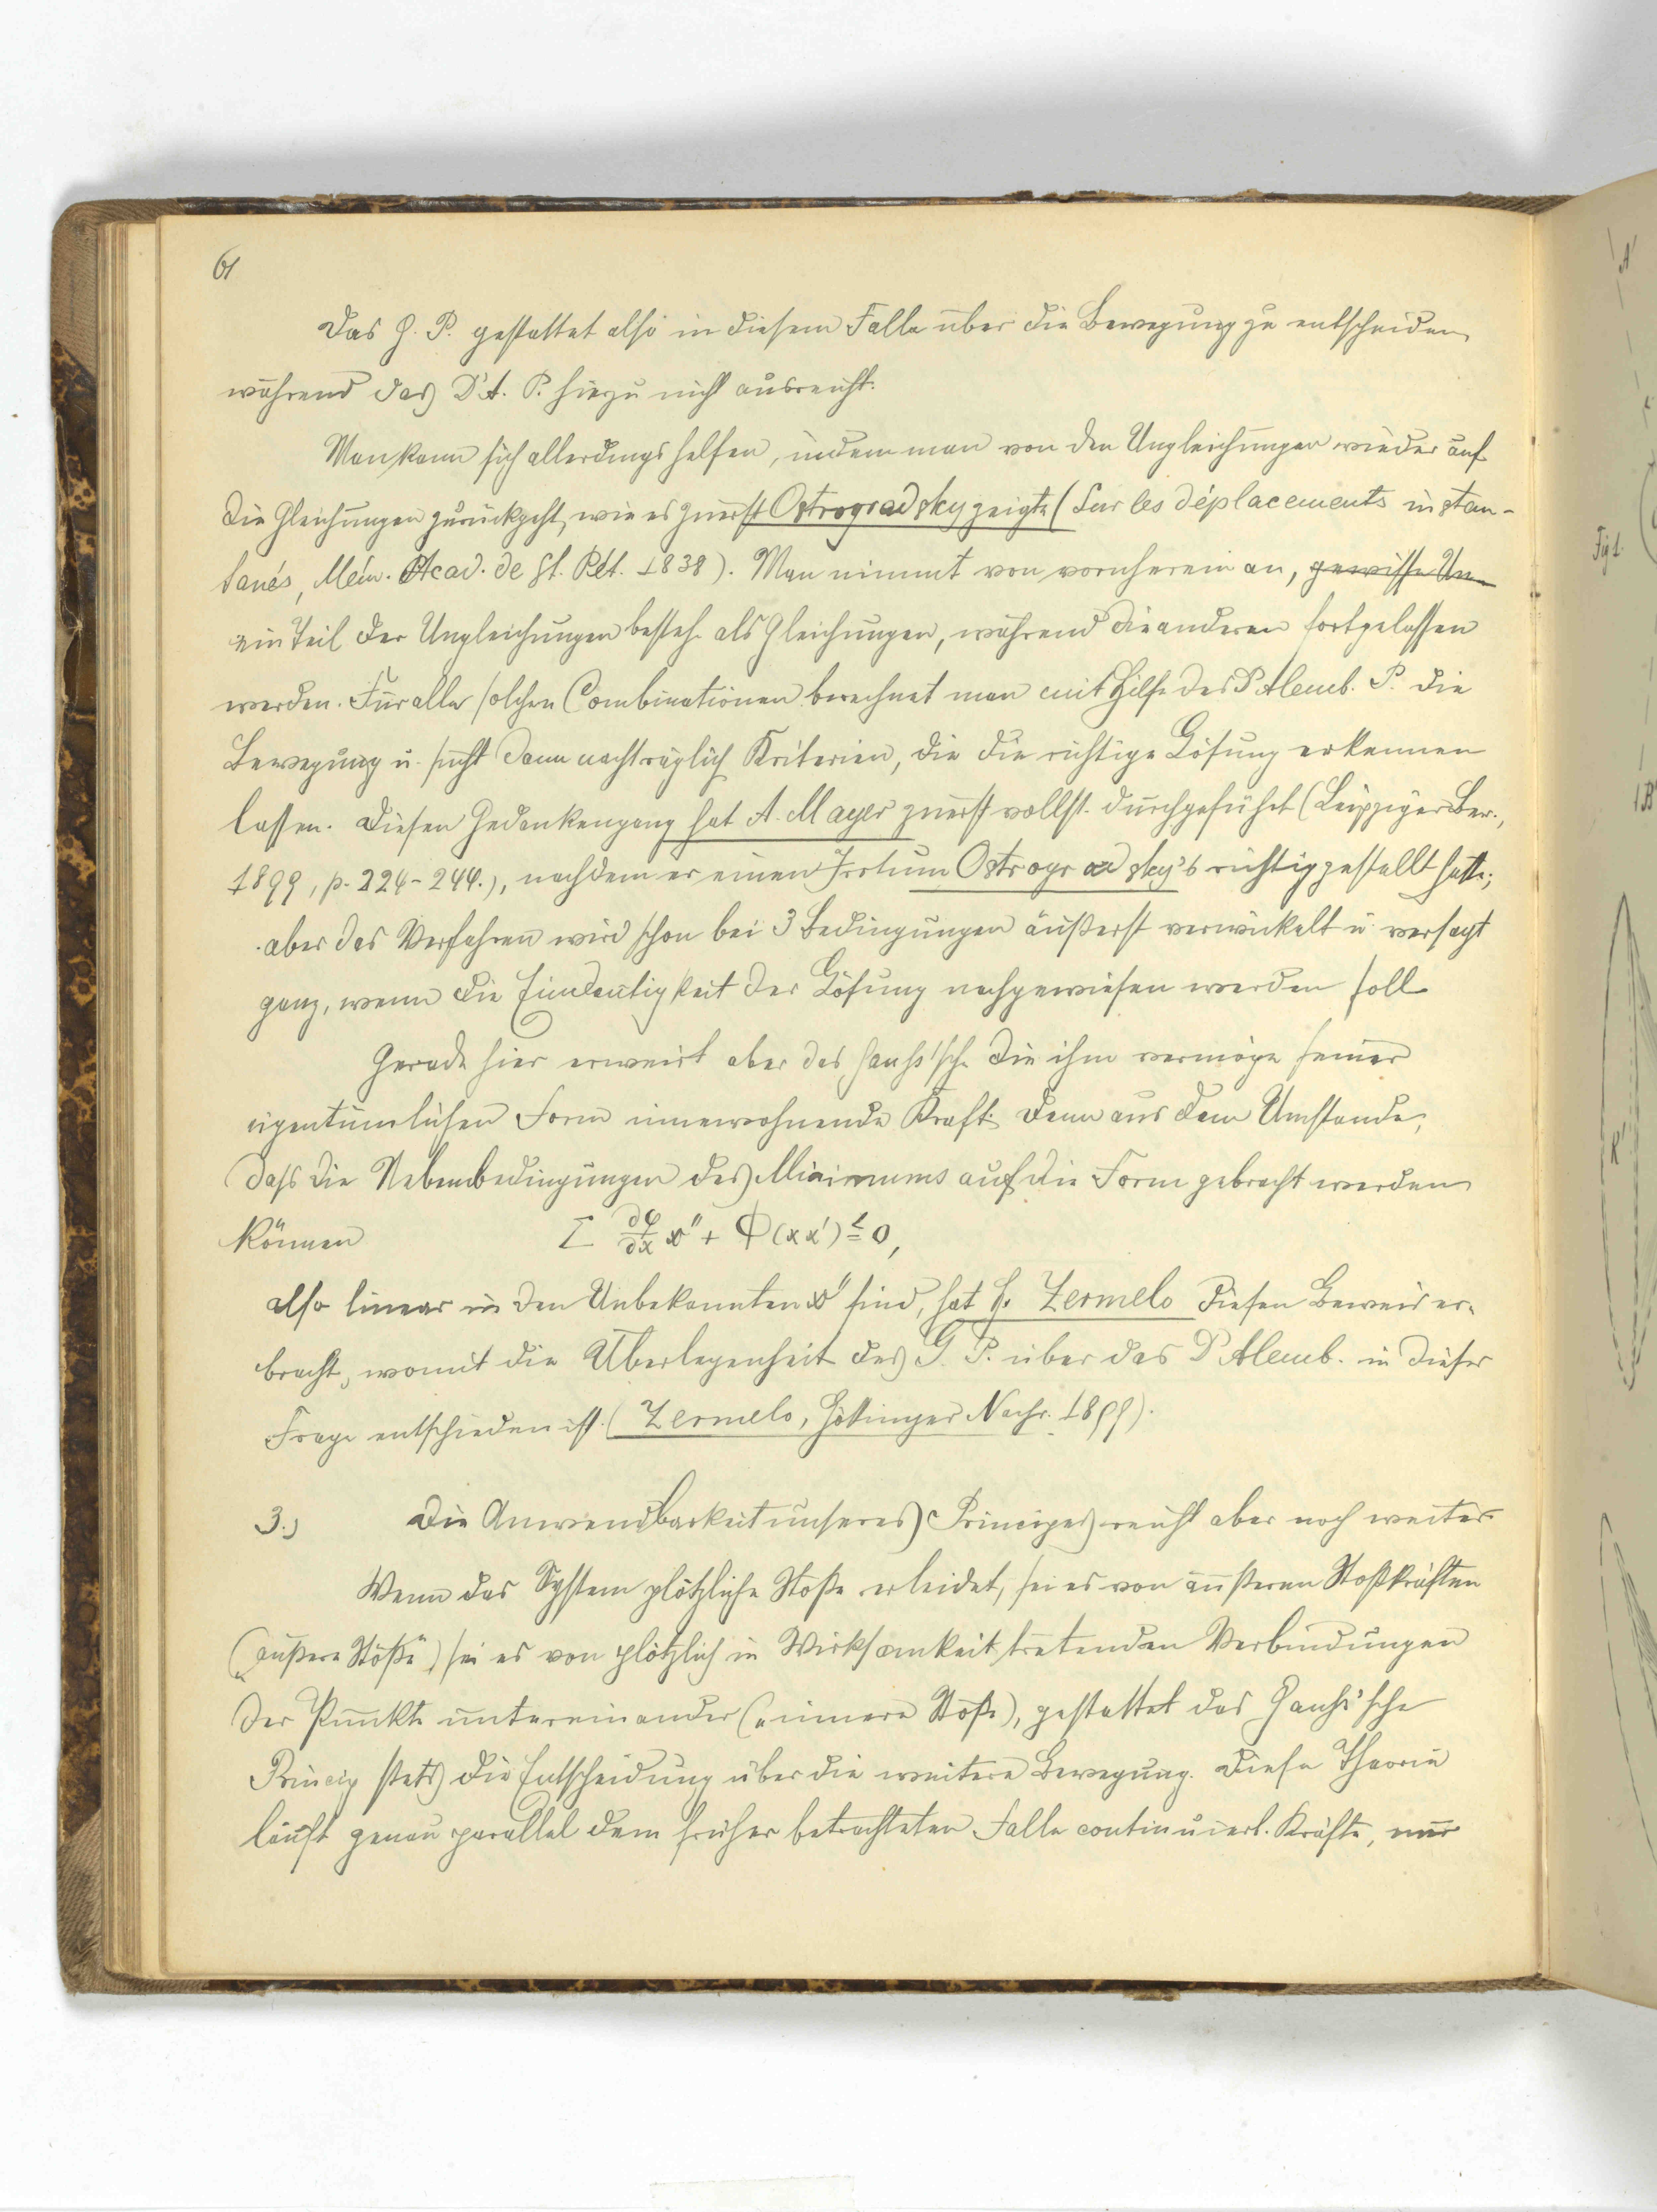 61
Das G. P. gestattet also in diesem Falle über die Bewegung zu entscheiden,
während das D'A. P. hiezu nicht ausreicht.
Man kann sich allerdings helfen, indem man von den Ungleichungen wieder auf
die Gleichungen zurückgeht, wie es zuerst Ostrogradsky zeigte (Sur les déplacements instan-
tanés, Mém. Acad. de St. Pét. 1838). Man nimmt von vornherein an, gewisse Un-
ein Teil der Ungleichungen bestehe als Gleichungen, während die anderen fortgelassen
werden. Für alle solchen Combinationen berechnet man mit Hilfe des D'Alemb. P. die
Bewegung u. sucht dann nachträglich Kriterien, die die richtige Lösung erkennen
lassen. Diesen Gedankengang hat A. Mayer zuerst vollst. durchgeführt (Leipziger Ber.,
1899, p. 224-244.), nachdem er einen Irrtum Ostrogradsky's richtig gestellt hatte;
aber das Verfahren wird schon bei 3 Bedingungen äußerst verwickelt u. versagt
ganz, wenn die Eindeutigkeit der Lösung nachgewiesen werden soll.
Gerade hier erweist aber das Gauß'sche die ihm vermöge seiner
eigentümlichen Form innewohnende Kraft. Denn aus dem Umstande,
daß die Nebenbedingungen des Minimums auf die Form gebracht werden
können Σ ∂φ/∂x x'' + Φ(x x') ≦ 0,
also linear in den Unbekannten x'' sind, hat H. Zermelo diesen Beweis er-
bracht, womit die Überlegenheit des G. P. über das D'Alemb. in dieser
Frage entschieden ist. (Zermelo, Göttinger Nachr. 1899).
3.) Die Anwendbarkeit unseres Principes reicht aber noch weiter.
Wenn das System plötzliche Stöße erleidet, sei es von äußeren Stoßkräften
(„äußere Stöße“) sei es von plötzlich in Wirksamkeit tretenden Verbindungen
der Punkte untereinander („innere Stöße), gestattet das Gauß'sche
Princip stets die Entscheidung über die weitere Bewegung. Diese Theorie
läuft genau parallel dem früher betrachteten Falle continuierl. Kräfte, nur
Fig 1.